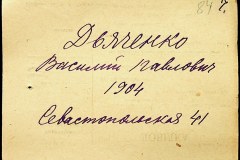 84 7.
Дьяченко
Василий Павлович
1904
Севастопольская 41